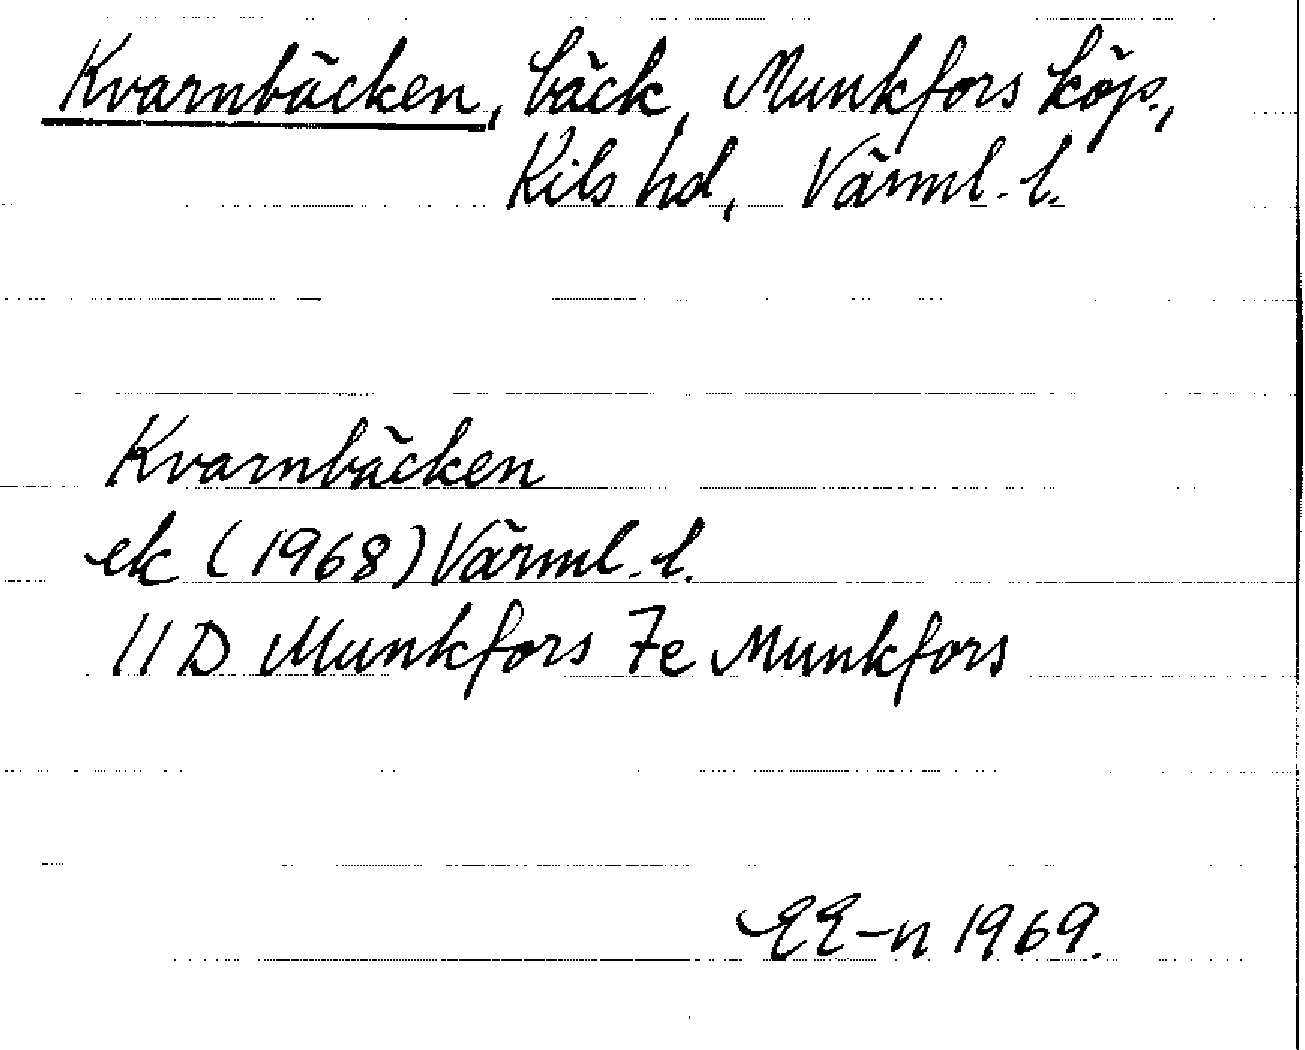 Kvarnbäcken, bäck, Munkfors köp.,
Kils hd, Värml. l.
Kvarnbäcken
ek (1968) Värml. l.
11 D Munkfors 7e Munkfors
EE-n 1969.